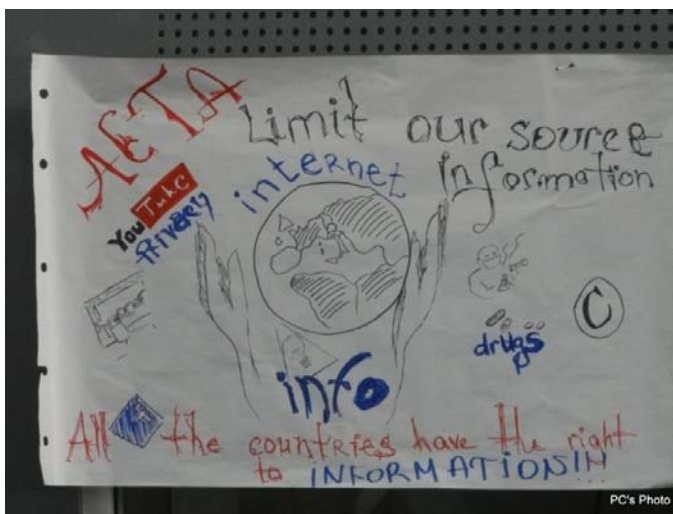 ACTA
Limit our source
information
internet
YouTube
Privacy
©
drugs
info
All the countries have the right
to INFORMATION!!!
PC's Photo